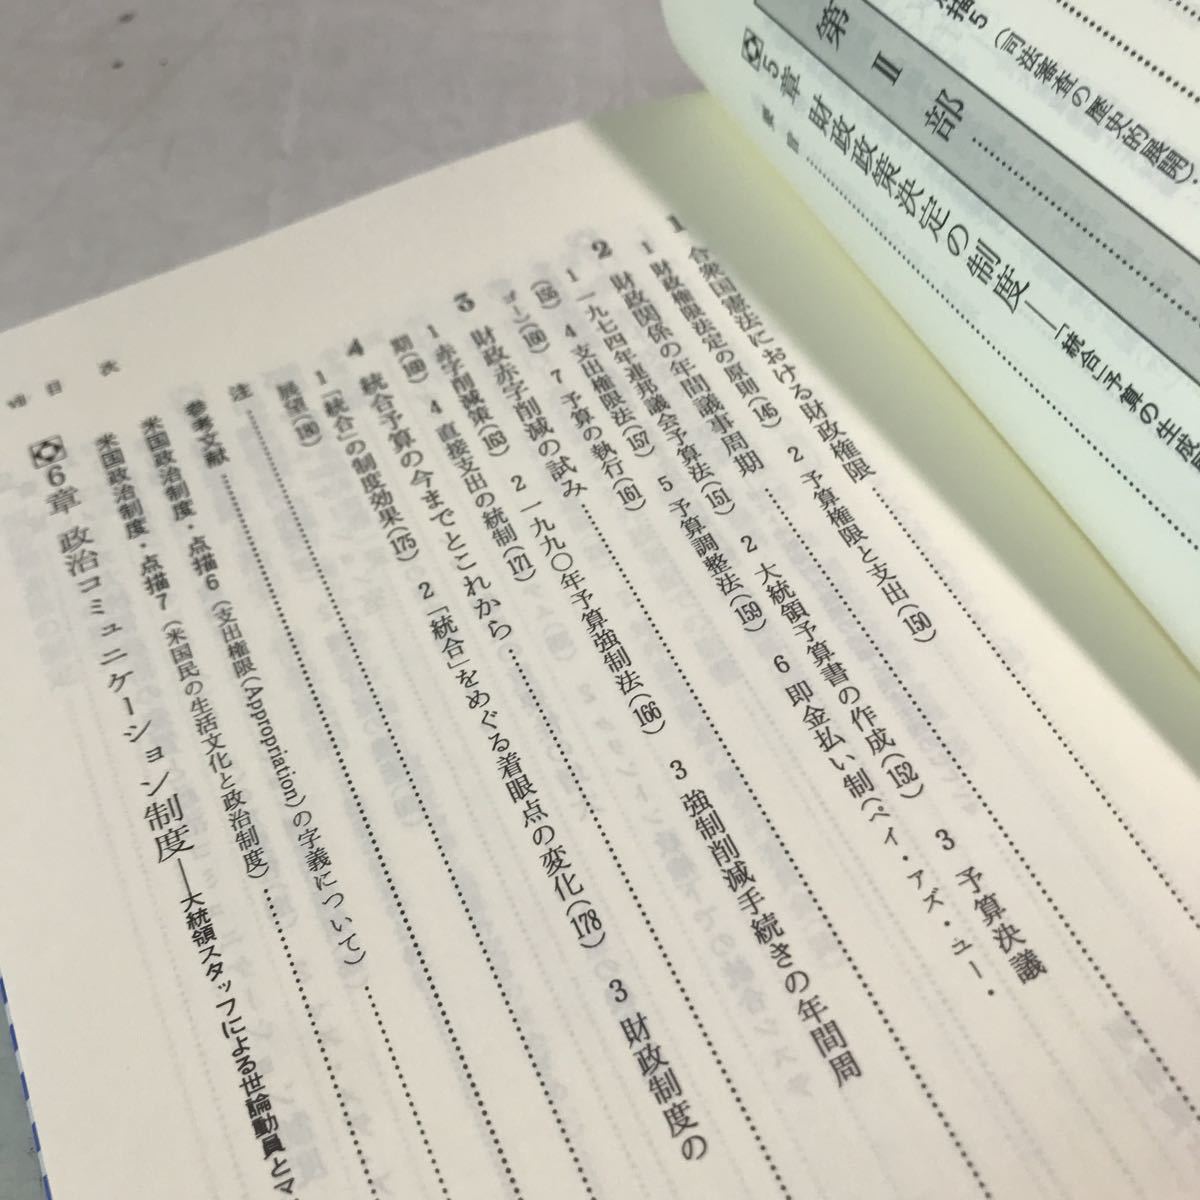 描5（司法審査の歴史的展開）
第Ⅱ部
5章 財政政策決定の制度──「統合」予算の生成
1 合衆国憲法における財政権限
1 財政権限法定の原則(145) 2 予算権限と支出(150)
2 財政関係の年間議事周期
1 一九七四年連邦議会予算法(151) 2 大統領予算書の作成(152) 3 予算決議
(156) 4 支出権限法(157) 5 予算調整法(159) 6 即金払い制(ペイ・アズ・ユー・
ゴーン)(160) 7 予算の執行(161)
3 財政赤字削減の試み
1 赤字削減策(163) 2 一九九〇年予算強制法(166) 3 強制削減手続きの年間周
期(169) 4 直接支出の統制(171)
4 統合予算の今までとこれから
1 「統合」の制度効果(175) 2 「統合」をめぐる着眼点の変化(178) 3 財政制度の
展望(180)
注
参考文献
米国政治制度・点描6（支出権限(Appropriation)の字義について）
米国政治制度・点描7（米国民の生活文化と政治制度）
6章 政治コミュニケーション制度──大統領スタッフによる世論動員とマ
細目次